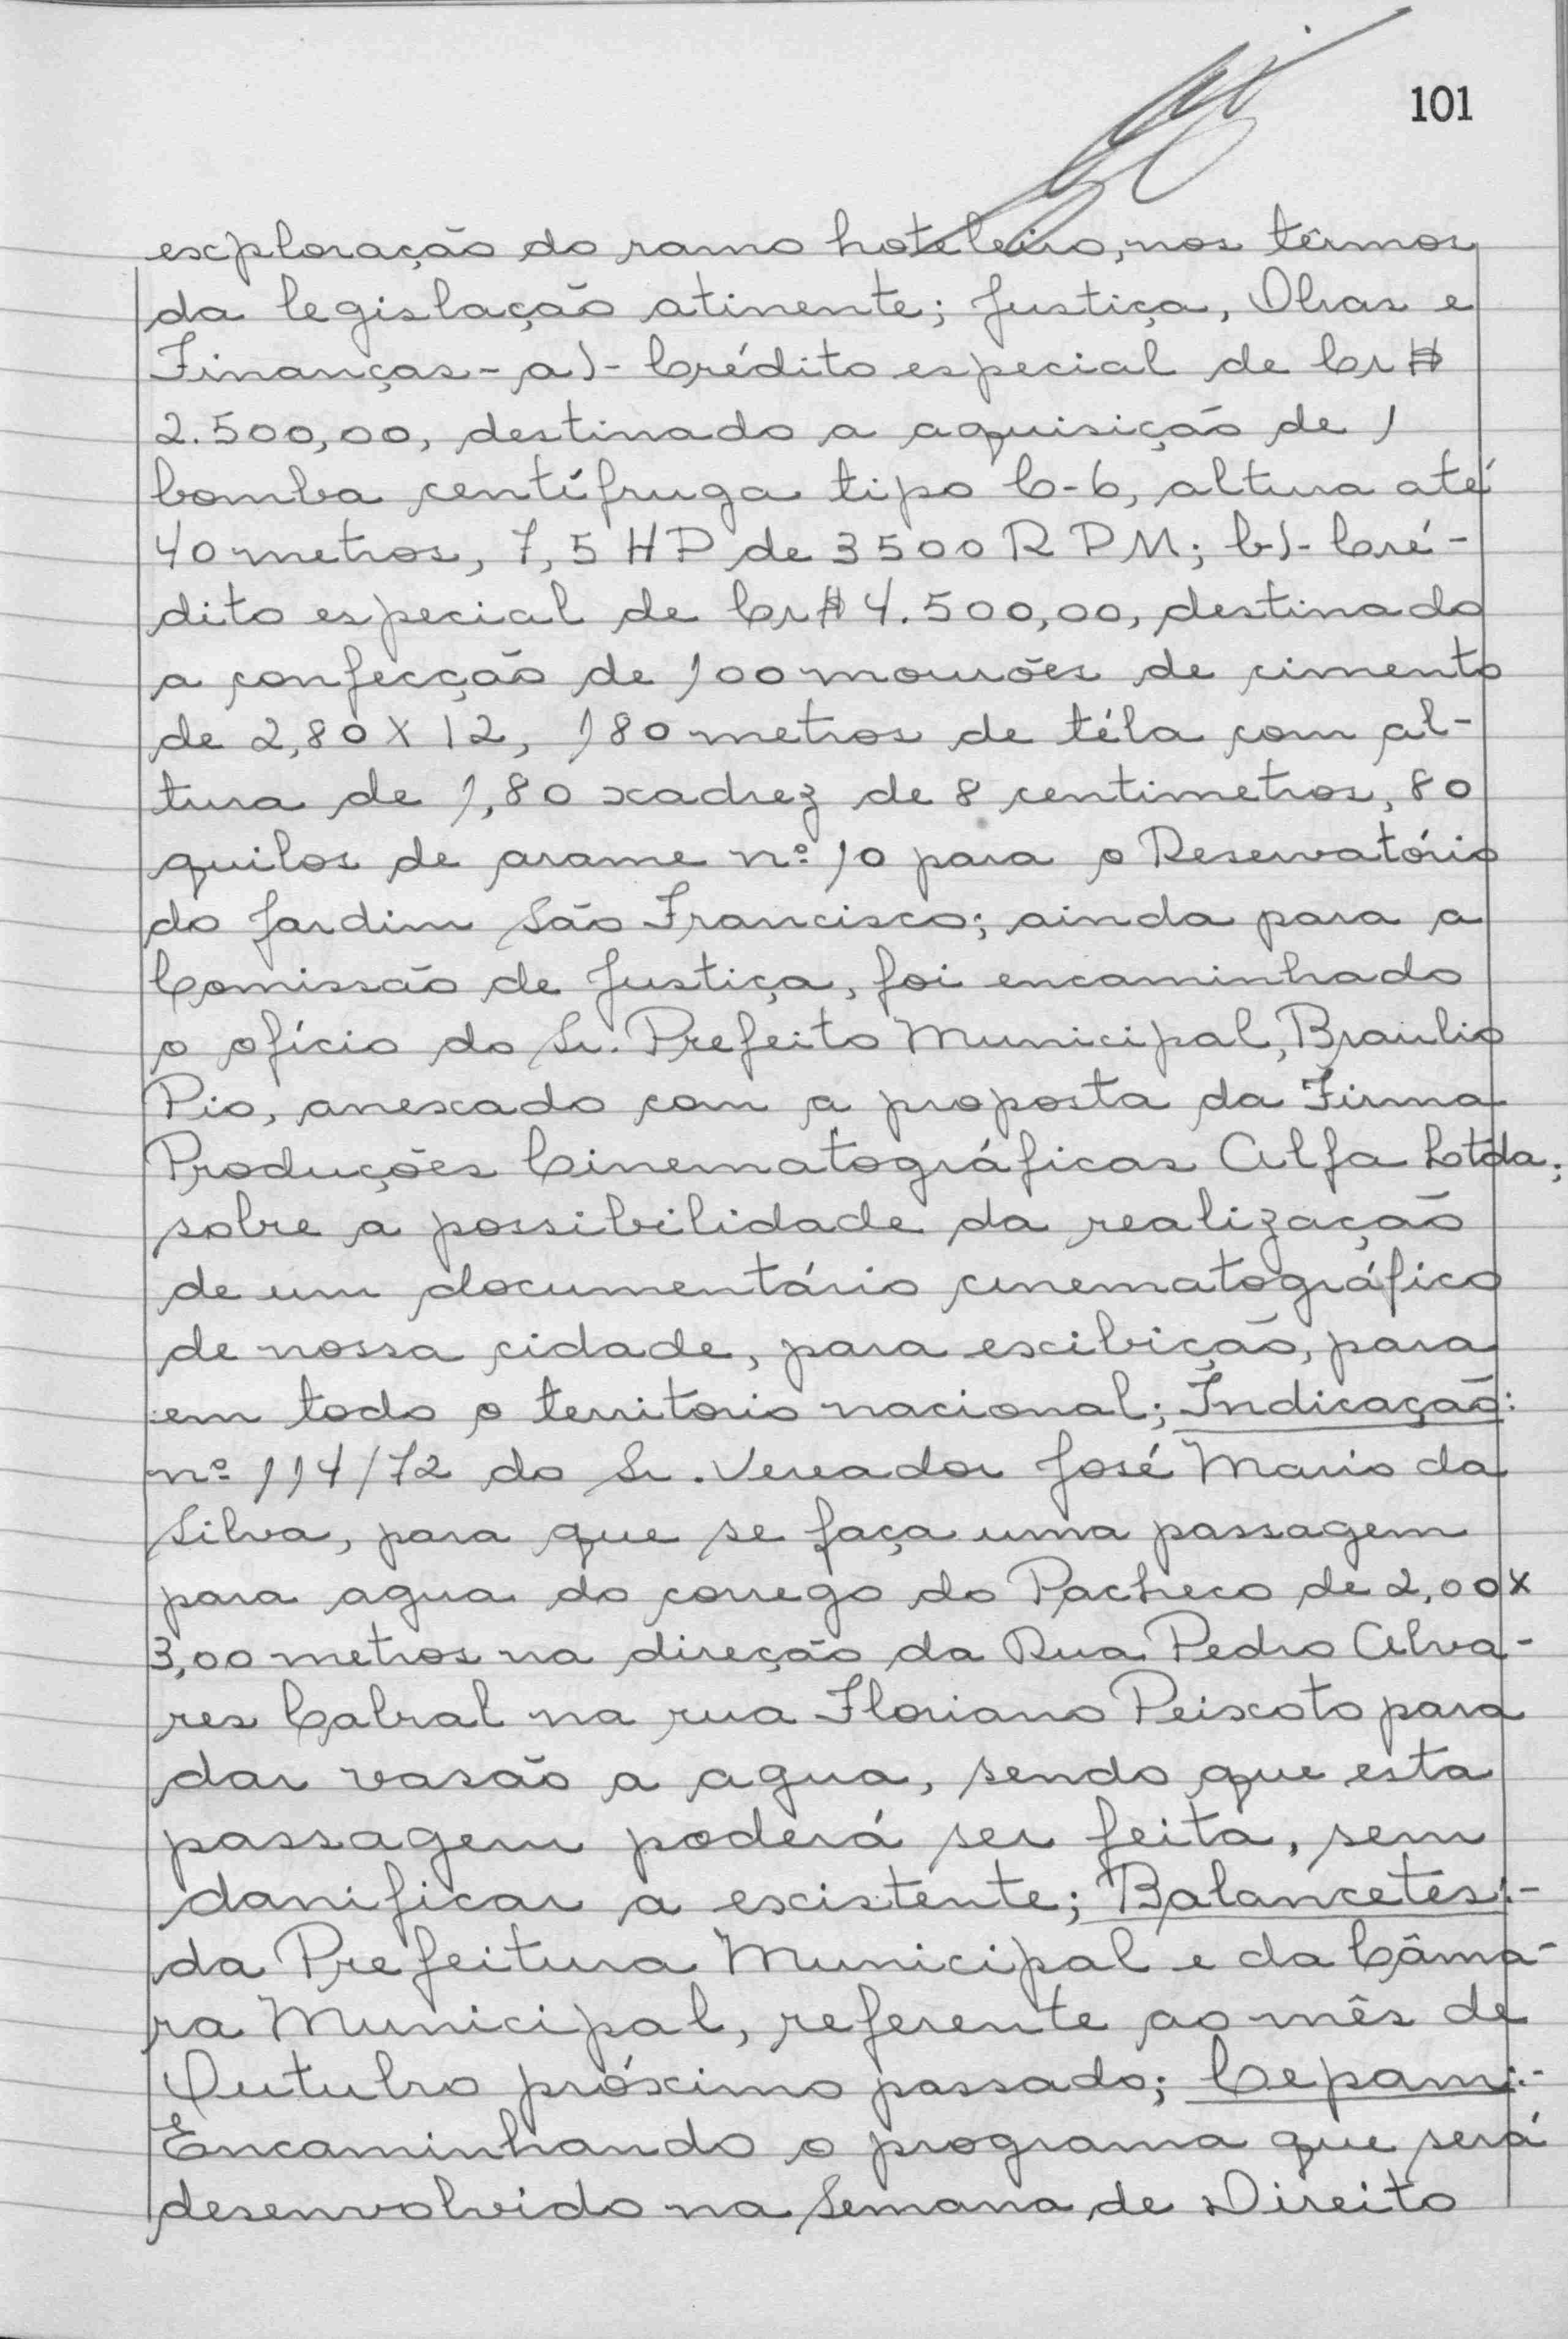 101
exploração do ramo hoteleiro, nos têrmos
da legislação atinente; Justiça, Obras e
Finanças - a) - Crédito especial de Cr$
2.500,00, destinado a aquisição de 1
bomba centífruga tipo C-6, altura até
40 metros, 7,5 HP de 3500 RPM; b) - Cré-
dito especial de Cr$ 4.500,00, destinado
a confecção de 100 mourões de cimento
de 2,80 X 12, 180 metros de téla com al-
tura de 1,80 xadrez de 8 centimetros, 80
quilos de arame nº 10 para o Reservatório
do Jardim São Francisco; ainda para a
Comissão de Justiça, foi encaminhado
o ofício do Sr. Prefeito Municipal, Braulio
Pio, anexado com a proposta da Firma
Produções Cinematográficas Alfa Ltda;
sobre a possibilidade da realização
de um documentário cinematográfico
de nossa cidade, para exibição, para
em todo o territorio nacional; Indicação:
nº 114/72 do Sr. Vereador José Mario da
Silva, para que se faça uma passagem
para agua do corrego do Pacheco de 2,00 x
3,00 metros na direção da Rua Pedro Alva-
res Cabral na rua Floriano Peixoto para
dar vasão a agua, sendo que esta
passagem poderá ser feita, sem
danificar a existente; Balancetes:-
da Prefeitura Municipal e da Câma-
ra Municipal, referente ao mês de
Outubro próximo passado; Cepam:-
Encaminhando o programa que será
desenvolvido na Semana de Direito